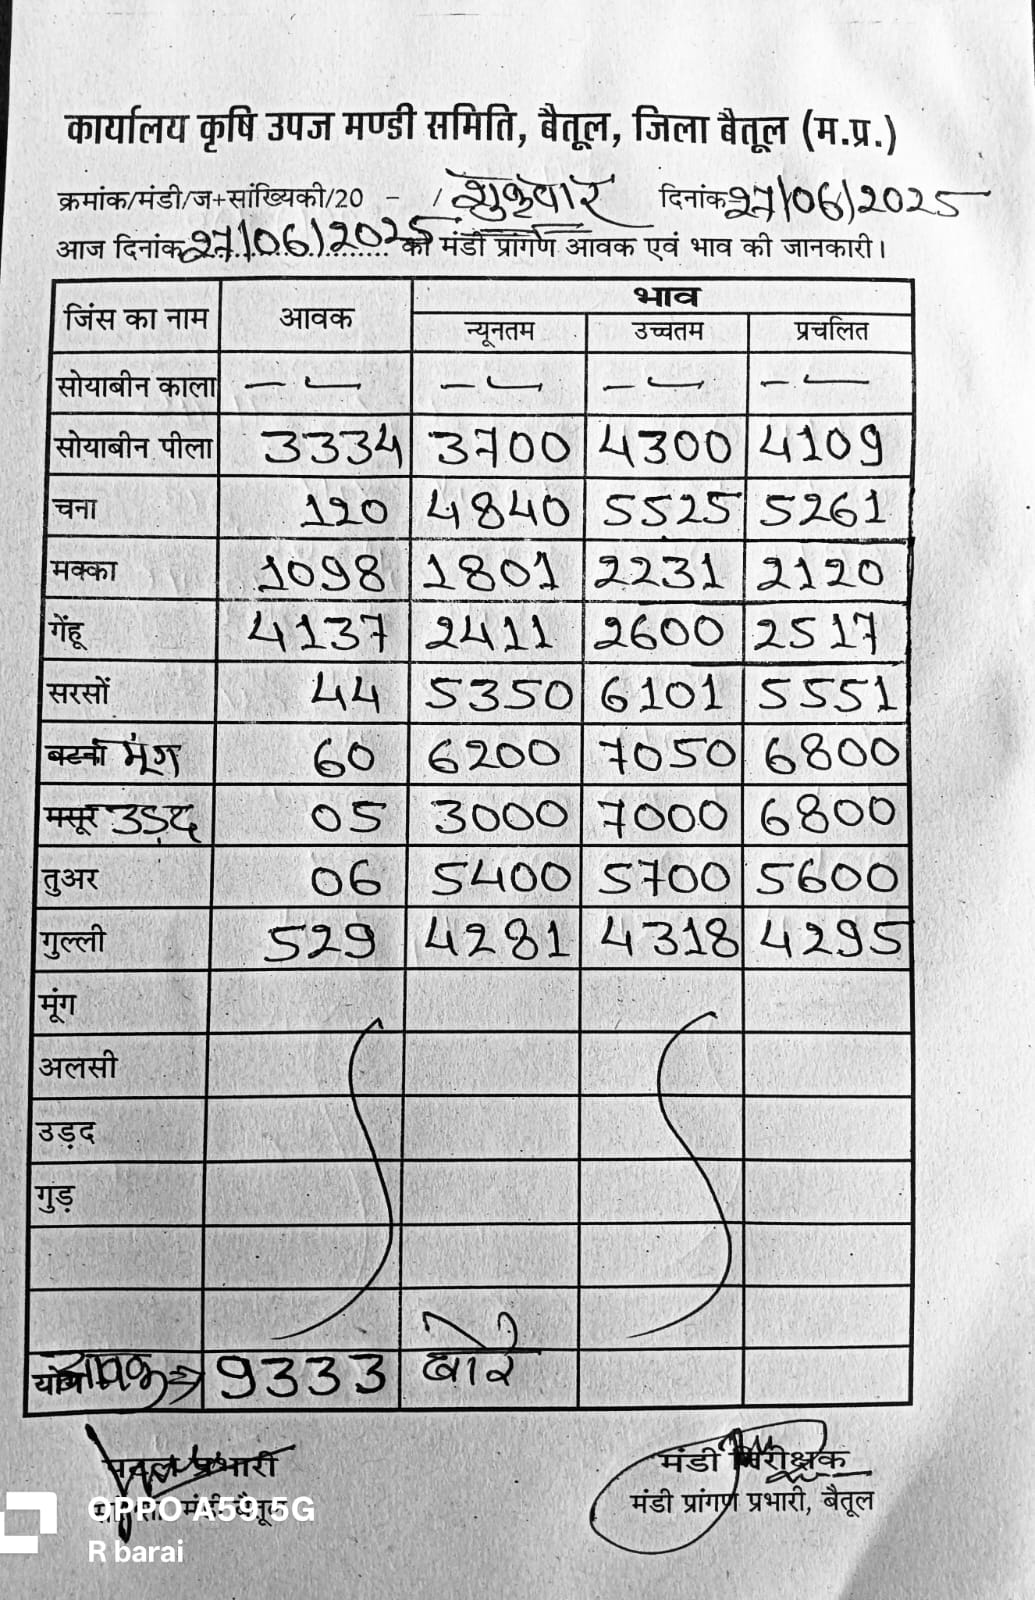 कार्यालय कृषि उपज मण्डी समिति, बैतूल, जिला बैतूल (म.प्र.)
क्रमांक/मंडी/ज+सांख्यिकी/20 - / शुक्रवार दिनांक 27/06/2025
आज दिनांक 27/06/2025 को मंडी प्रांगण आवक एवं भाव की जानकारी।
जिंस का नाम आवक भाव
न्यूनतम उच्चतम प्रचलित
सोयाबीन काला — — — — — — — —
सोयाबीन पीला 3334 3700 4300 4109
चना 120 4840 5525 5261
मक्का 1098 1801 2231 2120
गेंहू 4137 2411 2600 2517
सरसों 44 5350 6101 5551
बटना मूंग 60 6200 7050 6800
मसूर उड़द 05 3000 7000 6800
तुअर 06 5400 5700 5600
गुल्ली 529 4281 4318 4295
मूंग
अलसी
उड़द
गुड़
आवक 9333 बोरे
प्रभारी मंडी निरीक्षक
मंडी बैतूल मंडी प्रांगण प्रभारी, बैतूल
OPPO A59 5G
R barai